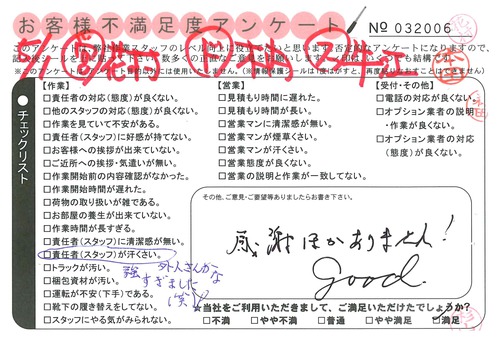 お客様不満足度アンケート
No 032006
このアンケートは、弊社
スタッフのレベル向上に役立
いと思います。否定的なアンケートになりますので、
※このアンケートは
目的以外には使用いたしません。(※情報保護シールは1度はがすと、再度貼りなおすことはできません)
チェックリスト
【作業】
□責任者の対応(態度)が良くない。
□他のスタッフの対応(態度)が良くない。
□作業を見ていて不安がある。
□責任者(スタッフ)に好感が持てない。
□お客様への挨拶が出来ていない。
□ご近所への挨拶・気遣いが無い。
□作業開始前の内容確認がなかった。
□作業開始時間が遅れた。
□荷物の取り扱いが雑である。
□お部屋の養生が出来ていない。
□作業時間が長すぎる。
□責任者(スタッフ)に清潔感が無い。
□責任者(スタッフ)が汗くさい。
□トラックが汚い。
□梱包資材が汚い。
□運転が不安(下手)である。
□靴下の履き替えをしてない。
□スタッフにやる気がみられない。
外人さんかな
強すぎました
(笑)
【営業】
□見積もり時間に遅れた。
□見積もり時間が長い。
□営業マンに清潔感が無い。
□営業マンが煙草くさい。
□営業マンが汗くさい。
□営業態度が良くない。
□営業の説明と作業が一致してない。
【受付・その他】
□電話の対応が良くない。
□オプション業者の説明
・作業が良くない。
□オプション業者の対応
(態度)が良くない。
その他、ご意見・ご要望等ありましたらお書き下さい。
感謝しかありません!
Good.
★当社をご利用いただきまして、ご満足いただけたでしょうか?
□不満 □やや不満 □普通 □やや満足 □満足